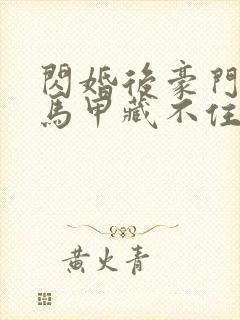 閃婚後豪門
馬甲藏不住
黃火青